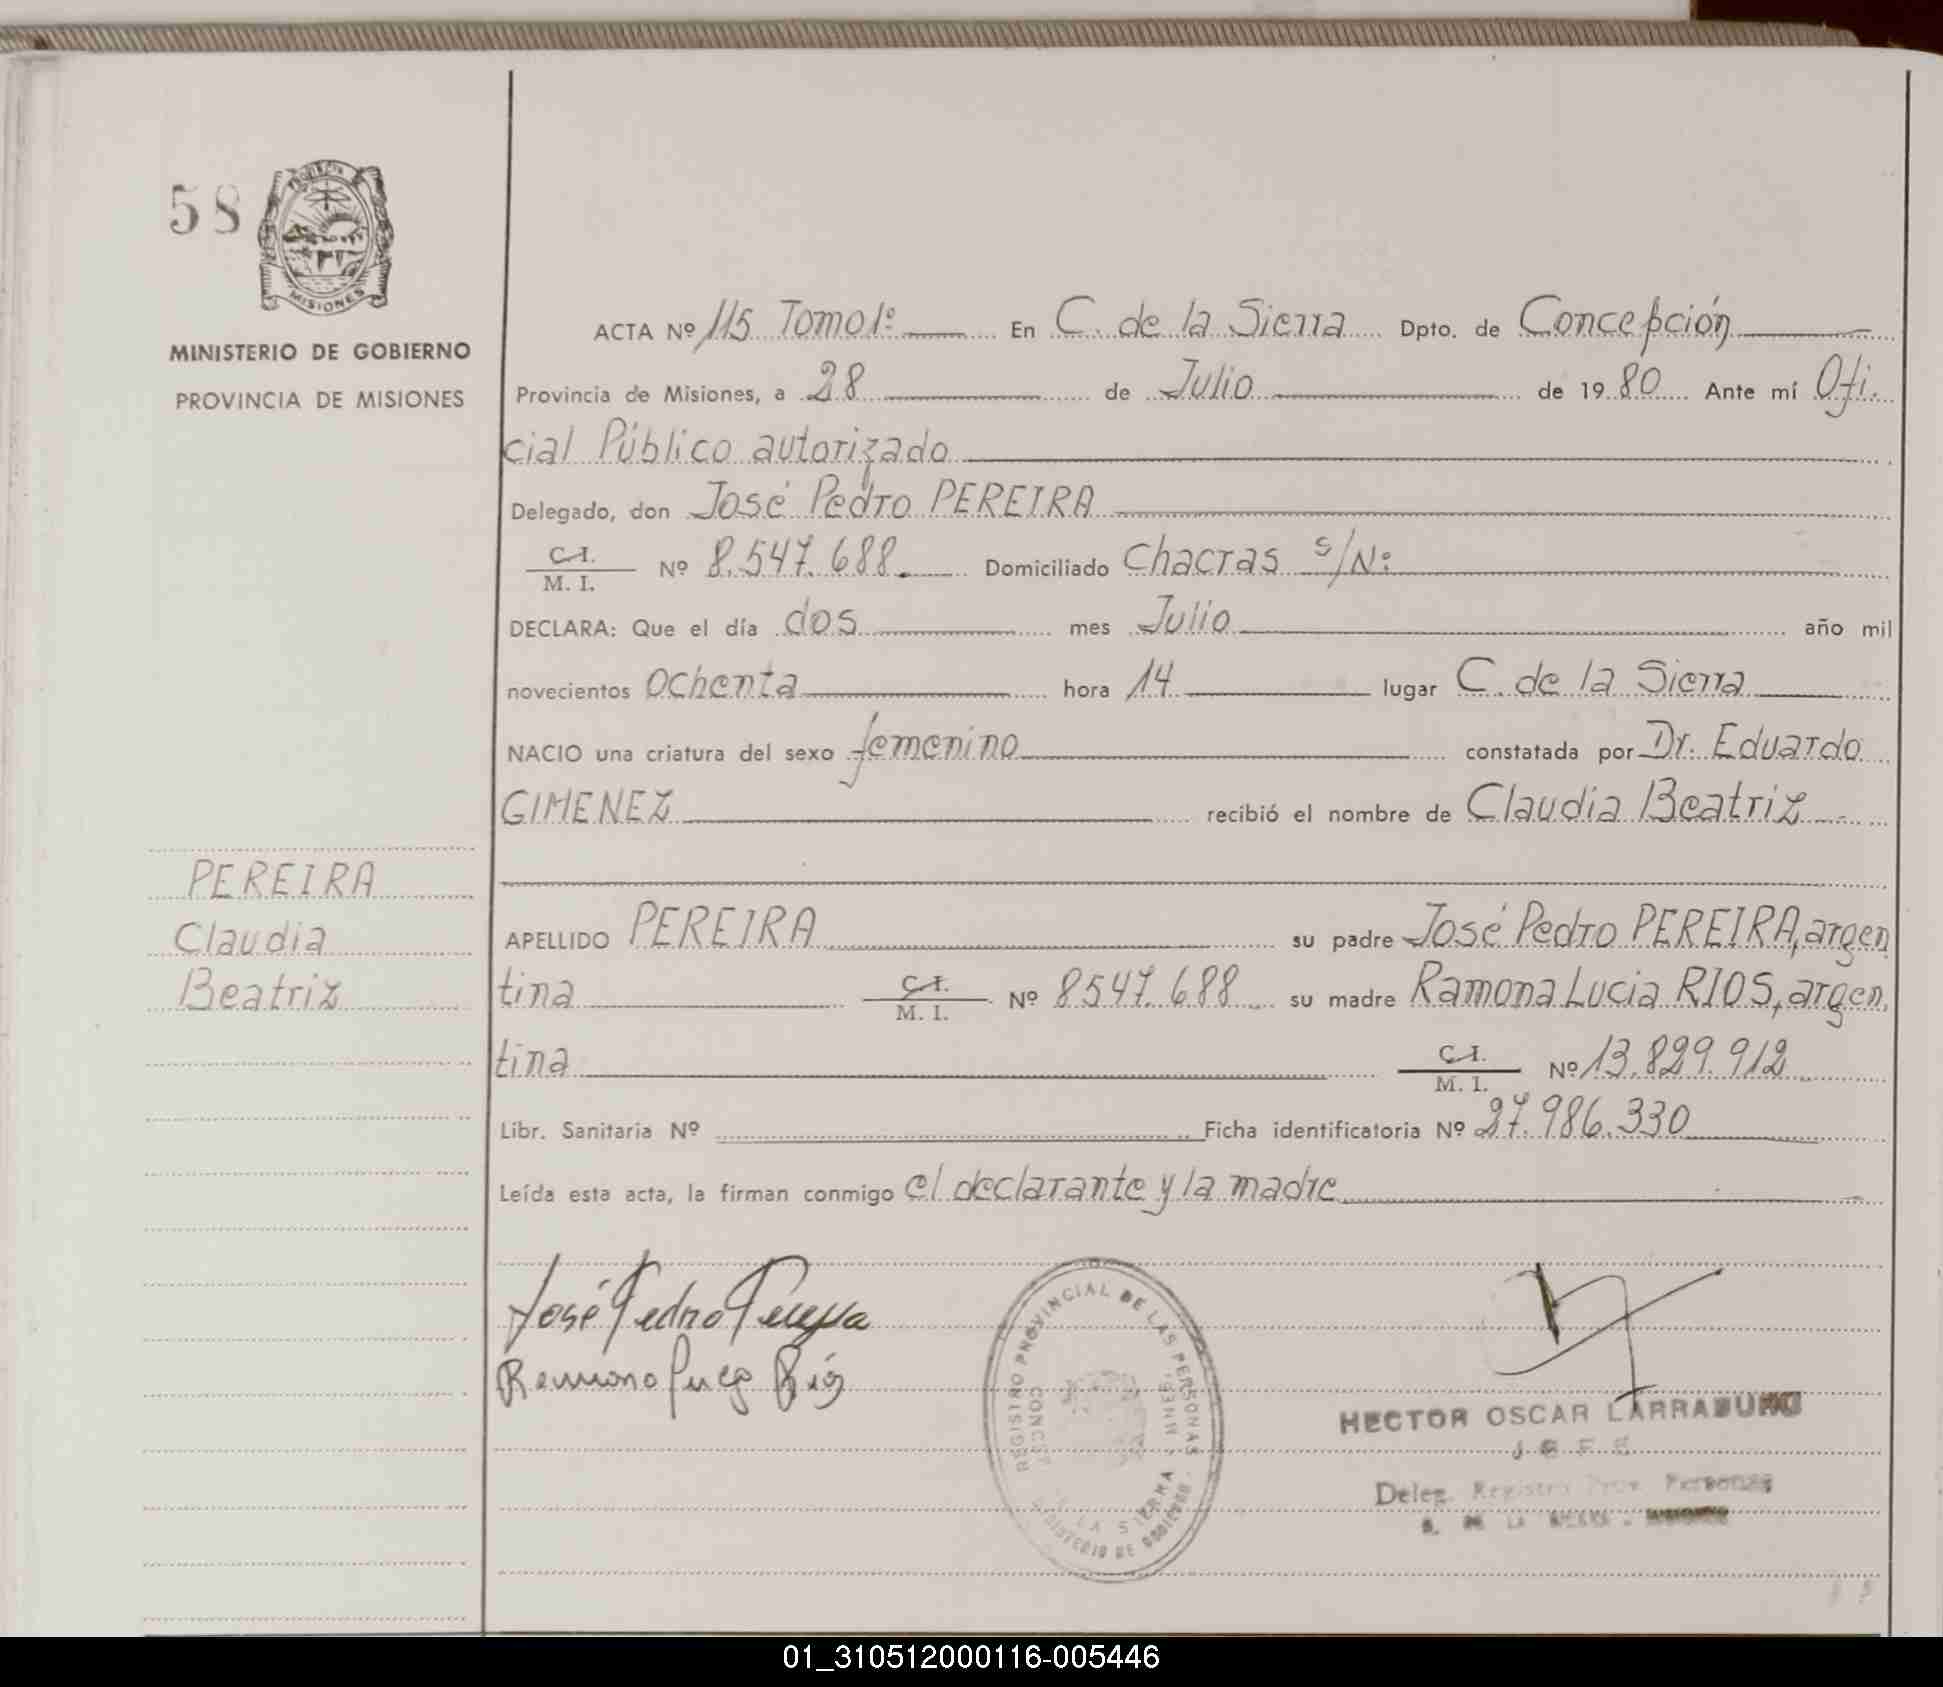 58
PROVINCIA
MISIONES
MINISTERIO DE GOBIERNO
PROVINCIA DE MISIONES
ACTA Nº 115 Tomo 1º En C. de la Sierra Dpto. de Concepción
Provincia de Misiones, a 28 de Julio de 1980 Ante mí Ofi.
cial Público autorizado
Delegado, don José Pedro PEREIRA
C.I.
M. I. Nº 8.547.688. Domiciliado Chacras s/Nº
DECLARA: Que el día dos mes Julio año mil
novecientos Ochenta hora 14 lugar C. de la Sierra
NACIO una criatura del sexo femenino constatada por Dr. Eduardo
GIMENEZ recibió el nombre de Claudia Beatriz
PEREIRA
Claudia
Beatriz
APELLIDO PEREIRA su padre José Pedro PEREIRA, argen
tina C.I. M. I. Nº 8547.688 su madre Ramona Lucia RIOS, argen,
tina C.I. M. I. Nº 13.829.912
Libr. Sanitaria Nº Ficha identificatoria Nº 27.986.330
Leída esta acta, la firman conmigo el declarante y la madre
José Pedro Pereyra
Ramona Lucia Ríos
REGISTRO PROVINCIAL DE LAS PERSONAS
LA SIERRA
MINISTERIO DE GOBIERNO
HECTOR OSCAR LARRABURO
JEFE
Deleg. Registro Prov. Personas
C. DE LA SIERRA - MISIONES
01_310512000116-005446